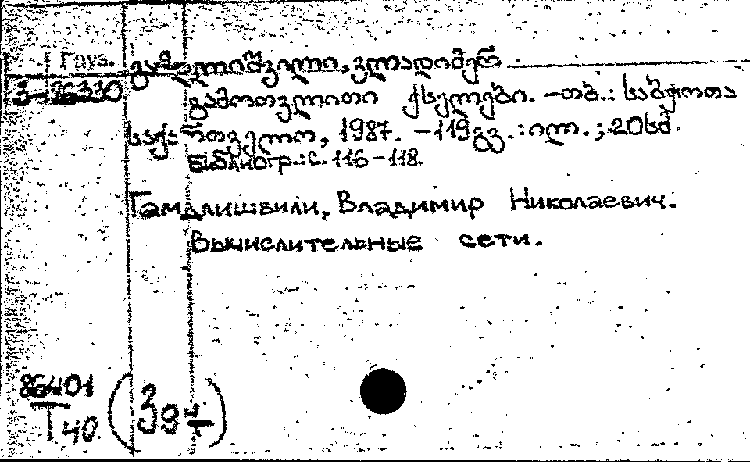 Груз.
გამდლიშვილი, ვლადიმერ
გამოთვლითი ქსელები. – თბ.: საბჭოთა
საქართველო, 1987. – 119გვ.: ილ.; 20სმ.
Библиогр.: с. 116–118.
Гамдлишвили, Владимир Николаевич.
Вычислительные сети.
86401
Г40